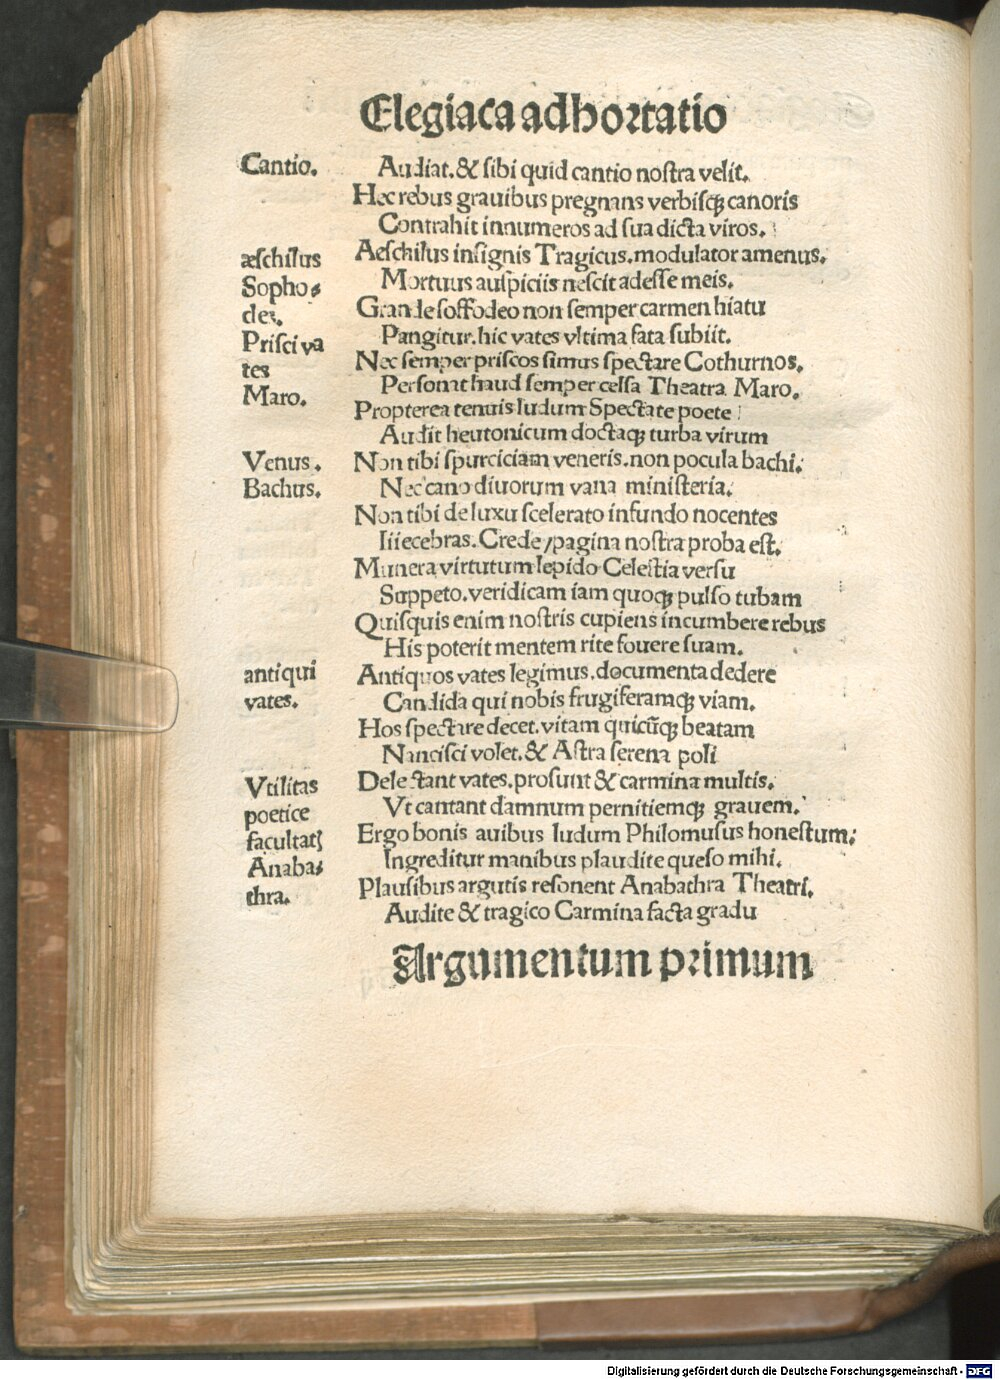 Elegiaca adhortatio
Cantio. Audiat. & sibi quid cantio nostra velit.
Hec rebus grauibus pregnans verbisqꝫ canoris
Contrahit innumeros ad sua dicta viros.
æschilus Aeschilus insignis Tragicus. modulator amenus.
Sopho⸗ Mortuus auspiciis nescit adesse meis.
cles. Grande soffodeo non semper carmen hiatu
Prisci va Pangitur. hic vates vltima fata subiit.
tes Nec semper priscos simus spectare Cothurnos.
Maro. Personat haud semper celsa Theatra Maro.
Propterea tenuis ludum Spectate poete
Audit heutonicum doctaqꝫ turba virum
Venus. Non tibi spurciciam veneris. non pocula bachi.
Bachus. Nec cano diuorum vana ministeria.
Non tibi de luxu scelerato infundo nocentes
Illecebras. Crede / pagina nostra proba est.
Munera virtutum lepido Celestia versu
Suppeto. veridicam iam quoqꝫ pulso tubam
Quisquis enim nostris cupiens incumbere rebus
His poterit mentem rite fouere suam.
antiqui Antiquos vates legimus. documenta dedere
vates. Candida qui nobis frugiferamqꝫ viam.
Hos spectare decet. vitam quicūqꝫ beatam
Nancisci volet. & Astra serena poli
Vtilitas Delectant vates. prosunt & carmina multis.
poetice Vt cantant damnum pernitiemqꝫ grauem.
facultatꝭ Ergo bonis auibus ludum Philomusus honestum:
Anaba⸗ Ingreditur manibus plaudite queso mihi.
thra. Plausibus argutis resonent Anabathra Theatri.
Audite & tragico Carmina facta gradu
Argumentum primum
Digitalisierung gefördert durch die Deutsche Forschungsgemeinschaft - DFG